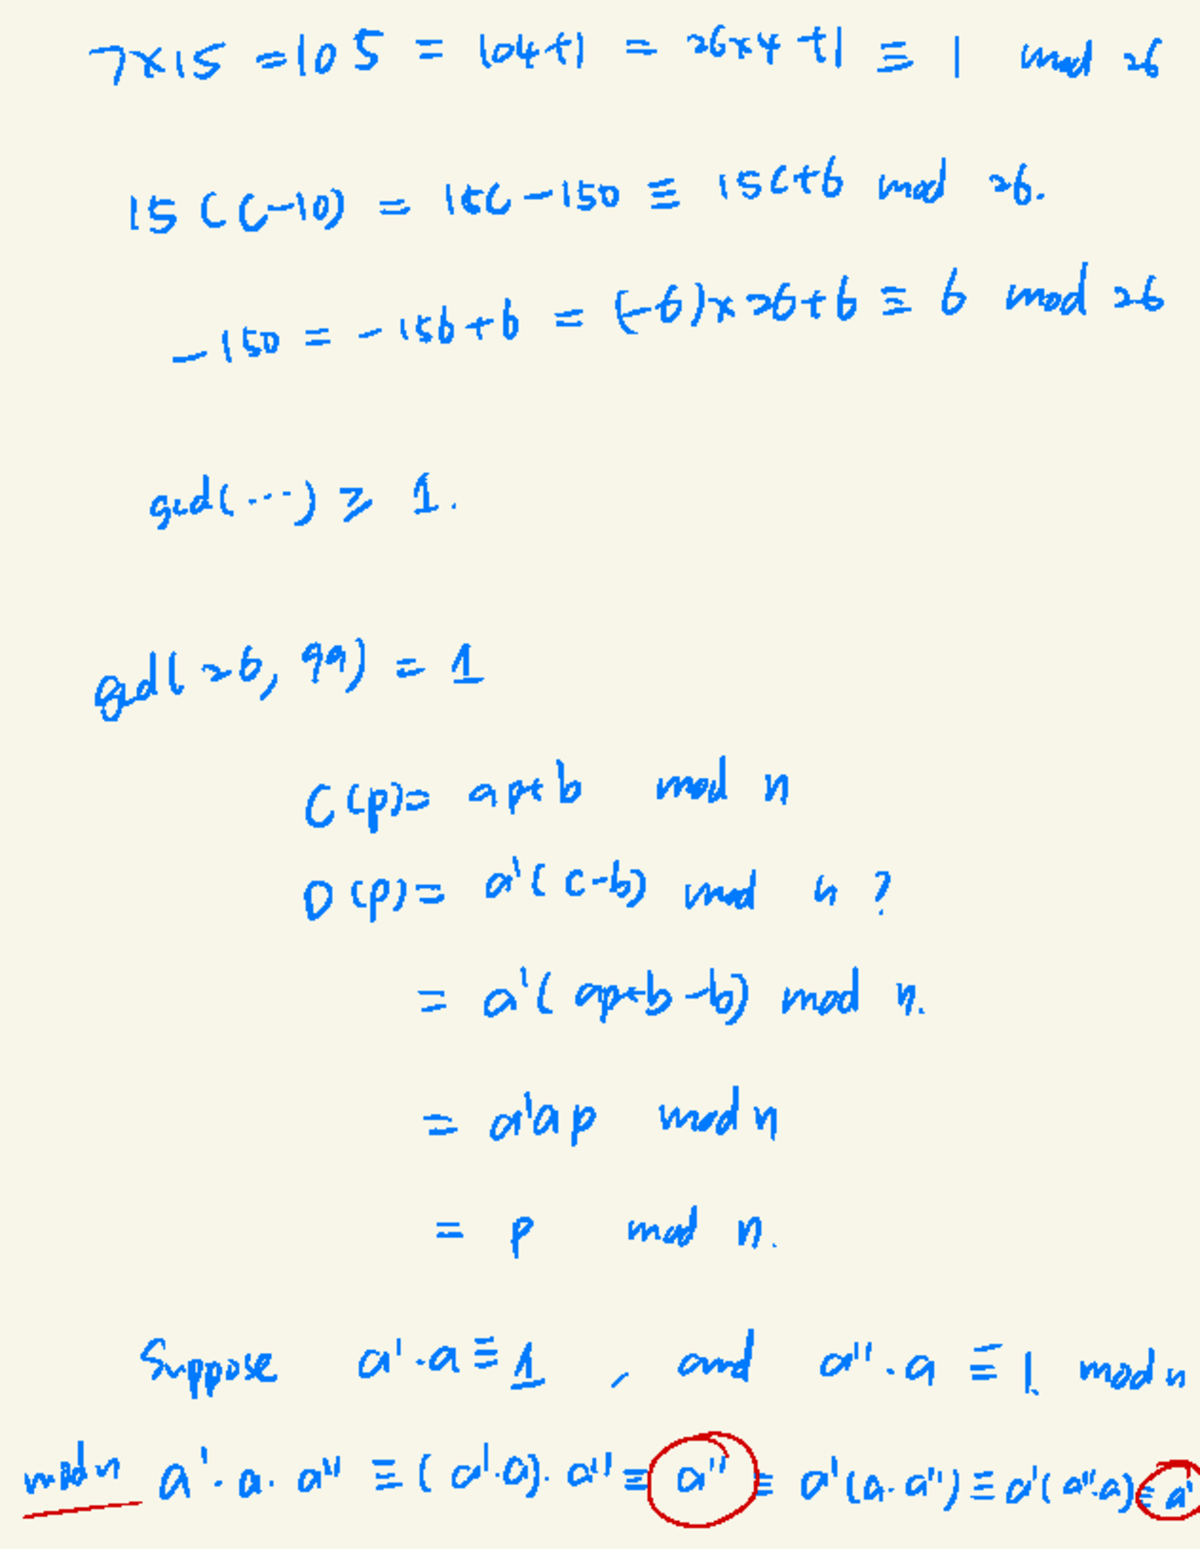 7×15 = 105 = 104+1 = 26×4 +1 ≡ 1 mod 26
15 (C-10) = 15C-150 ≡ 15C+6 mod 26.
-150 = -156+6 = (-6)×26+6 ≡ 6 mod 26
gcd(...) ≥ 1.
gcd(26, 99) = 1
C(p)= ap+b mod n
D(p)= a'(c-b) mod n ?
= a'(ap+b-b) mod n.
= a'ap mod n
= p mod n.
Suppose a'·a ≡ 1, and a''·a ≡ 1. mod n
mod n a'·a·a'' ≡ (a'·a)·a'' ≡ a'' ≡ a'(a·a'') ≡ a'(a''·a) ≡ a'